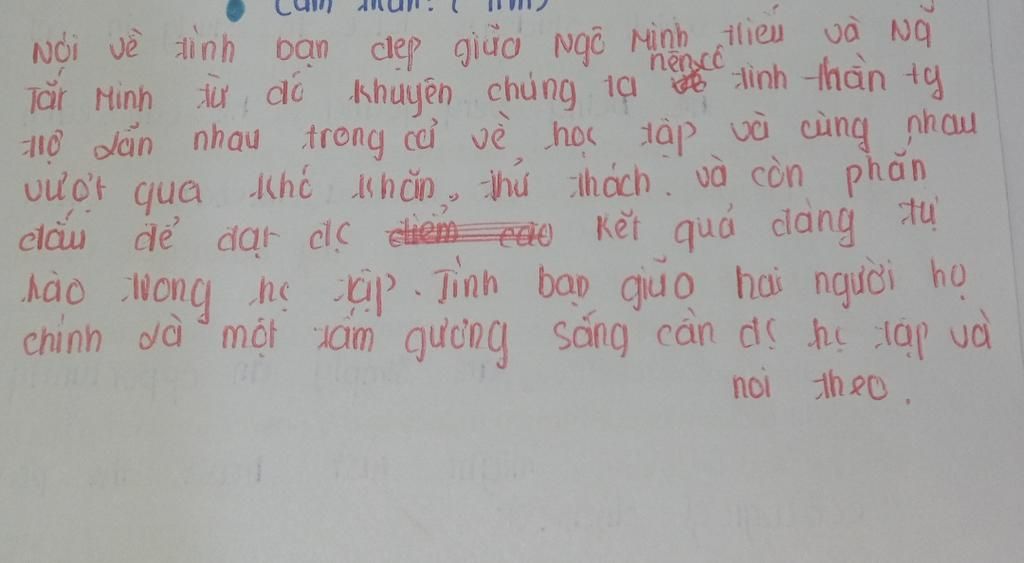 Nói về tình bạn đẹp giữa Ngô Minh Hiếu và Ng
Tất Minh từ đó khuyên chúng ta nên có tinh thần tg
trợ lẫn nhau trong cả về học tập và cùng nhau
vượt qua khó khăn, thử thách. và còn phấn
đấu để đạt đc kết quả đáng tự
hào trong hc tập. Tình bạn giữa hai người họ
chính là một tấm gương sáng cần đc hc tập và
noi theo.